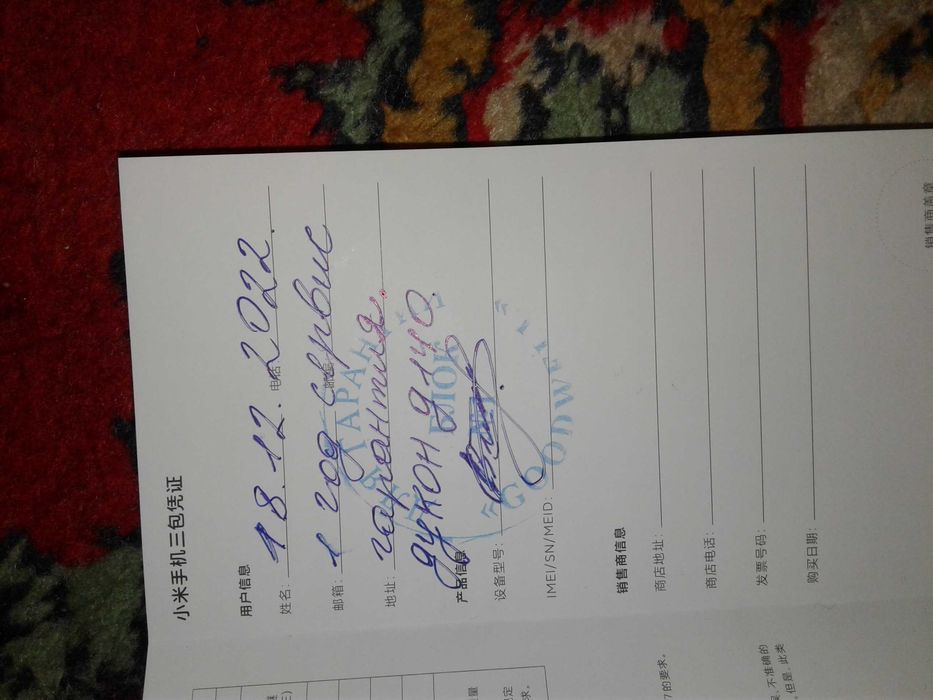 小米手机三包凭证
用户信息
姓名: 电话:
18.12.2022.
邮箱:
1 год сервис
地址:
гарантия.
дукон
产品信息
设备型号:
IMEI/SN/MEID:
БЛОК
销售商信息
商店地址:
商店电话:
发票号码:
购买日期:
销售商盖章
的要求。
不准确的
但是, 此类